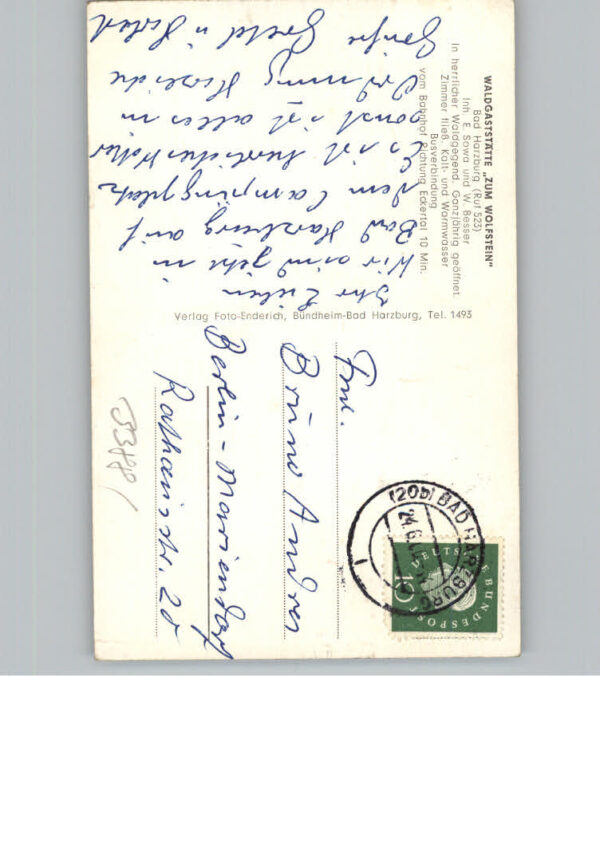 WALDGASTSTÄTTE „ZUM WOLFSTEIN"
Bad Harzburg (Ruf 523)
Inh. E. Sowa und W. Besser
In herrlicher Waldgegend. Ganzjährig geöffnet.
Zimmer fließ. Kalt- und Warmwasser
Busverbindung
vom Bahnhof Richtung Eckertal 10 Min.
Ihr Lieben
Wir sind jetzt in
Bad Harzburg auf
dem Campingplatz
Es ist herrliches Wetter
sonst ist alles in
Ordnung Herzliche
Grüße Gretel u
Verlag Foto-Enderich, Bündheim-Bad Harzburg, Tel. 1493
Fam.
Bruno Andres
Berlin-Mariendorf
Rathausstr. 20
(20b) BAD HARZBURG
24.6.
1
DEUTSCHE BUNDESPOST
10